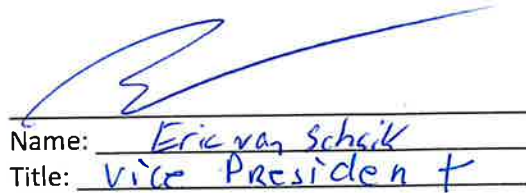 Name: Eric van Schaik
Title: Vice President